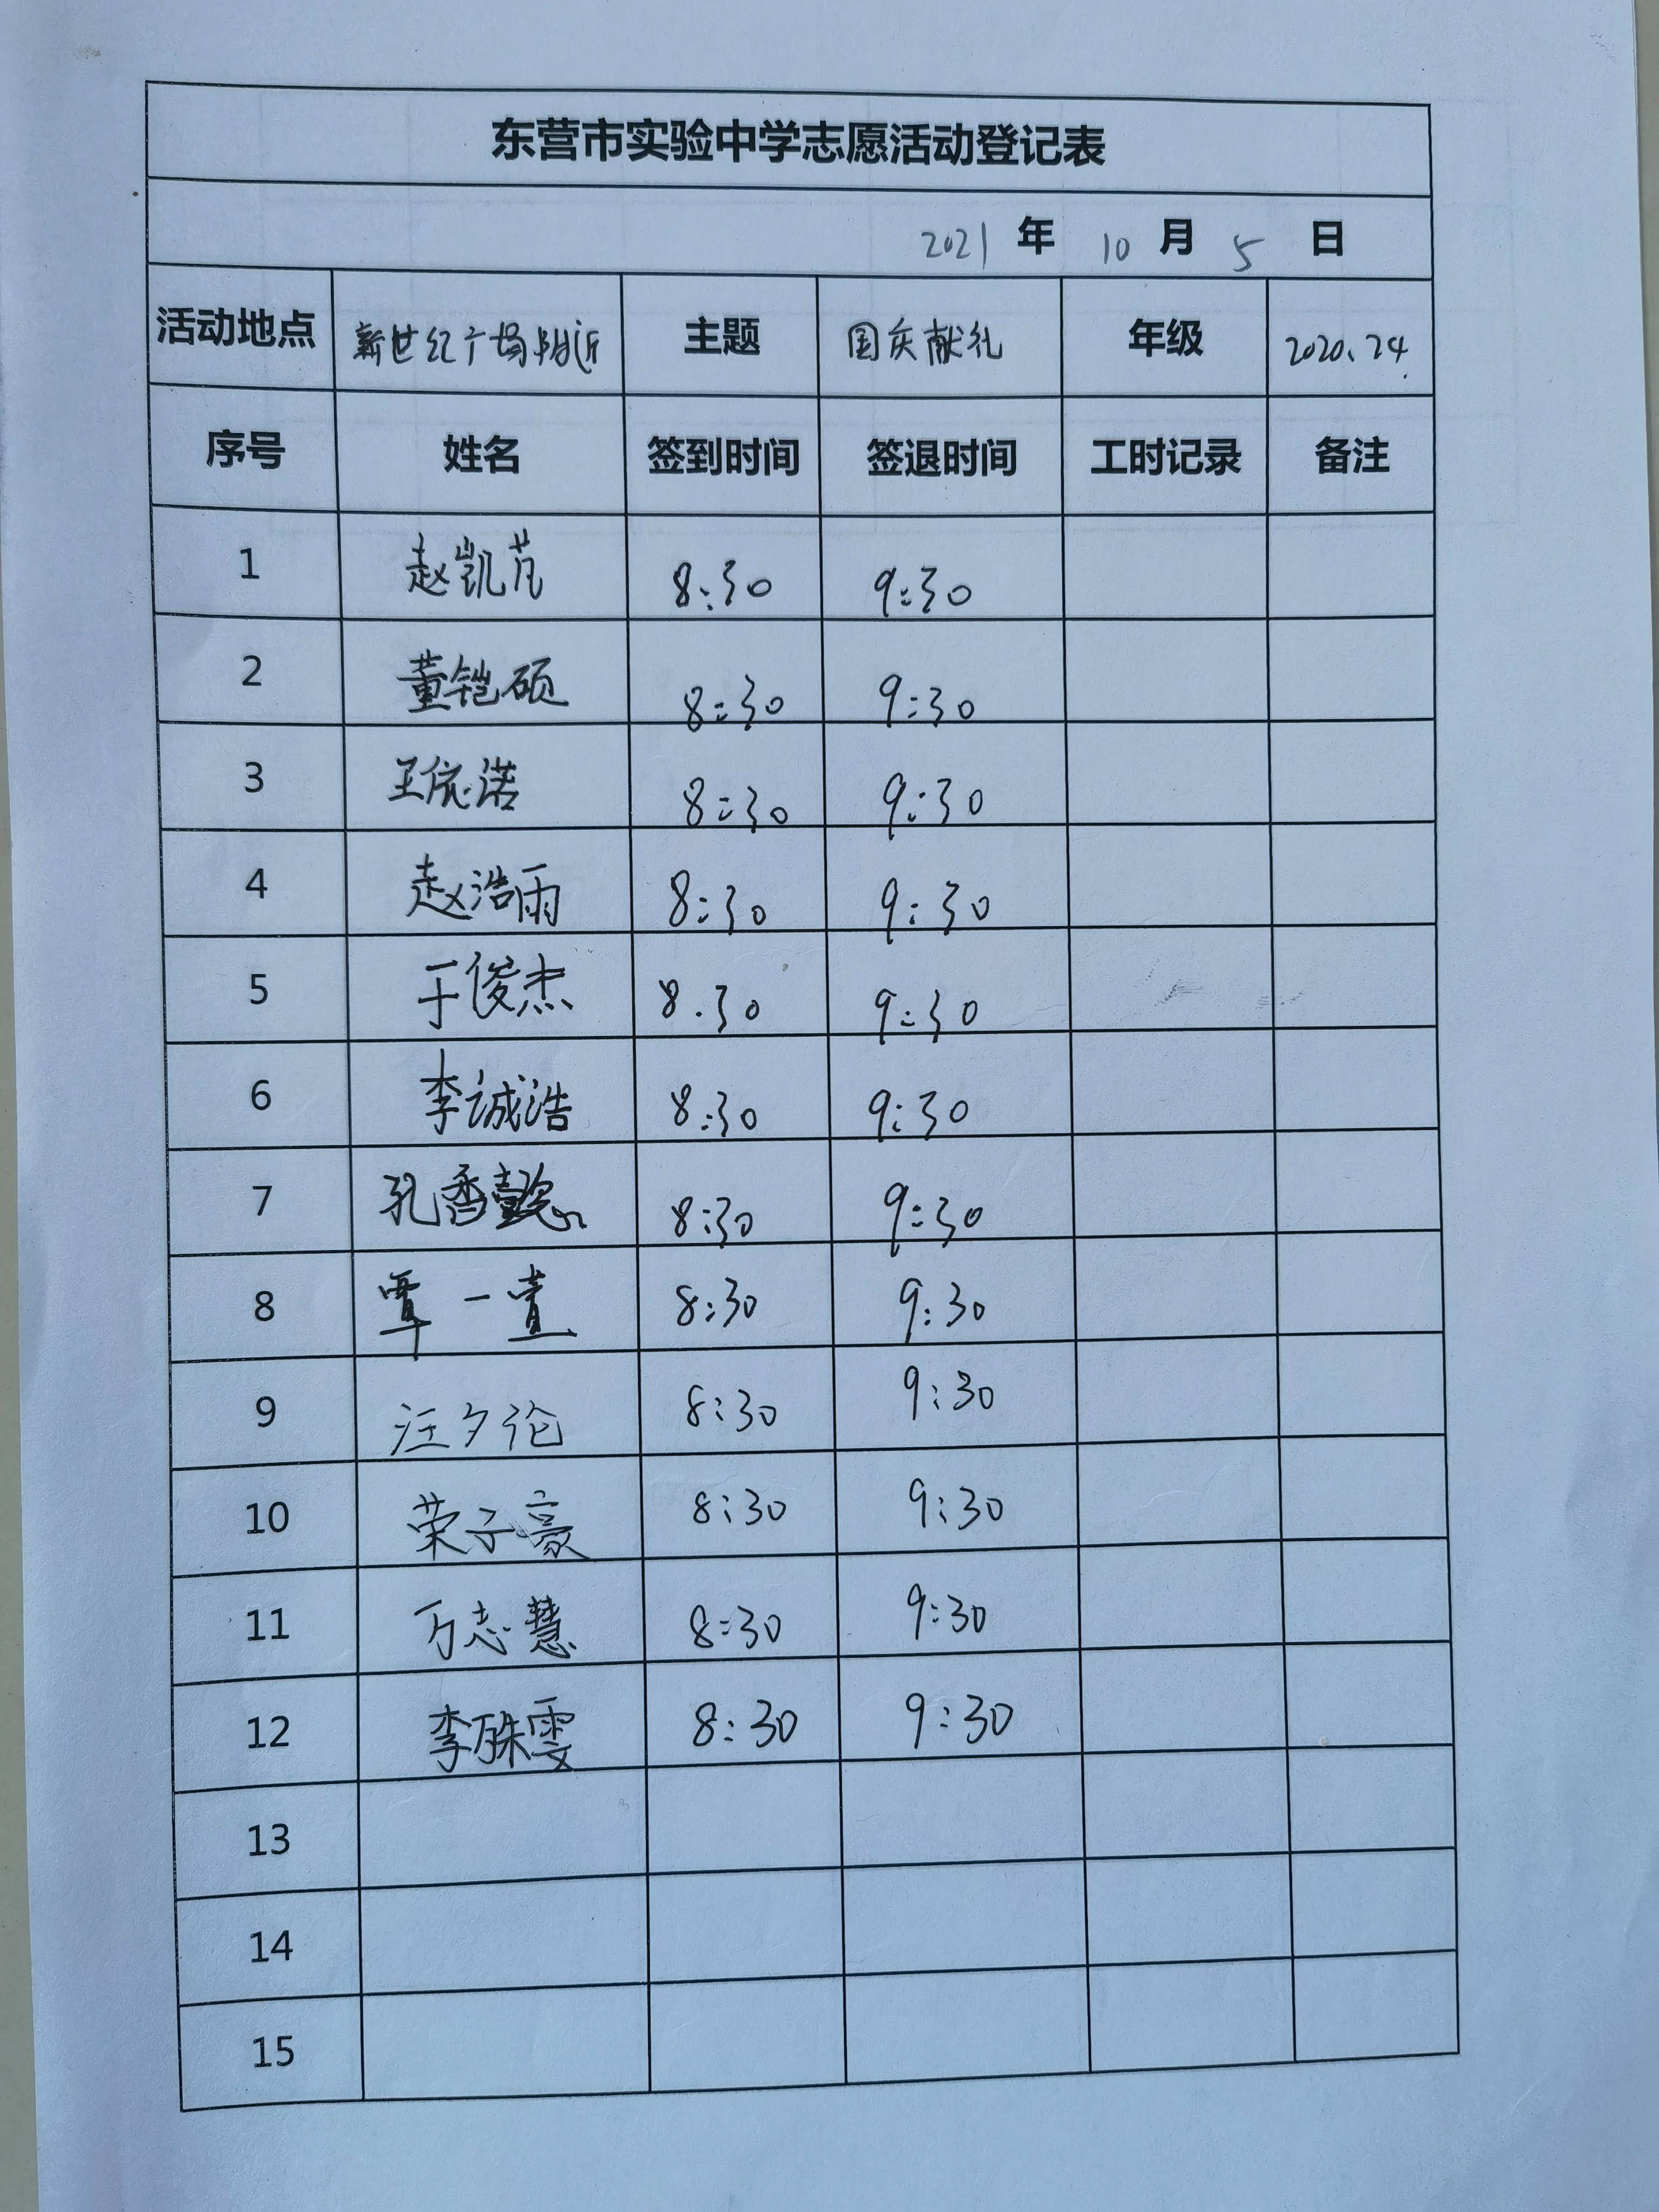 东营市实验中学志愿活动登记表
2021 年 10 月 5 日
活动地点 新世纪广场附近 主题 国庆献礼 年级 2020、24
序号 姓名 签到时间 签退时间 工时记录 备注
1 赵凯芃 8:30 9:30
2 董铠硕 8:30 9:30
3 王依诺 8:30 9:30
4 赵浩雨 8:30 9:30
5 于俊杰 8:30 9:30
6 李诚浩 8:30 9:30
7 孔香懿 8:30 9:30
8 覃一 8:30 9:30
9 汪夕论 8:30 9:30
10 荣子豪 8:30 9:30
11 万志慧 8:30 9:30
12 李姝雯 8:30 9:30
13
14
15